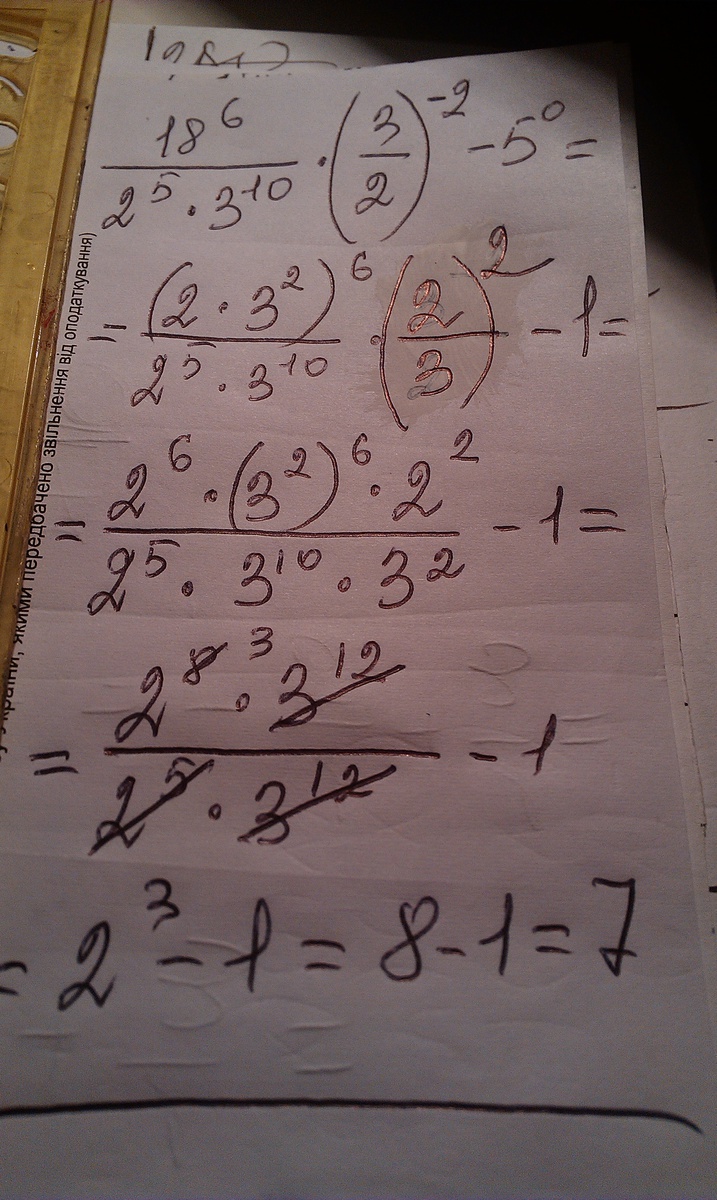 18^6 / (2^5 · 3^10) · (3/2)^-2 - 5^0 =
= (2 · 3^2)^6 / (2^5 · 3^10) · (2/3)^2 - 1 =
= (2^6 · (3^2)^6 · 2^2) / (2^5 · 3^10 · 3^2) - 1 =
= (2^8 3 · 3^12) / (2^5 · 3^12) - 1
= 2^3 - 1 = 8 - 1 = 7
України, якими передбачено звільнення від оподаткування)